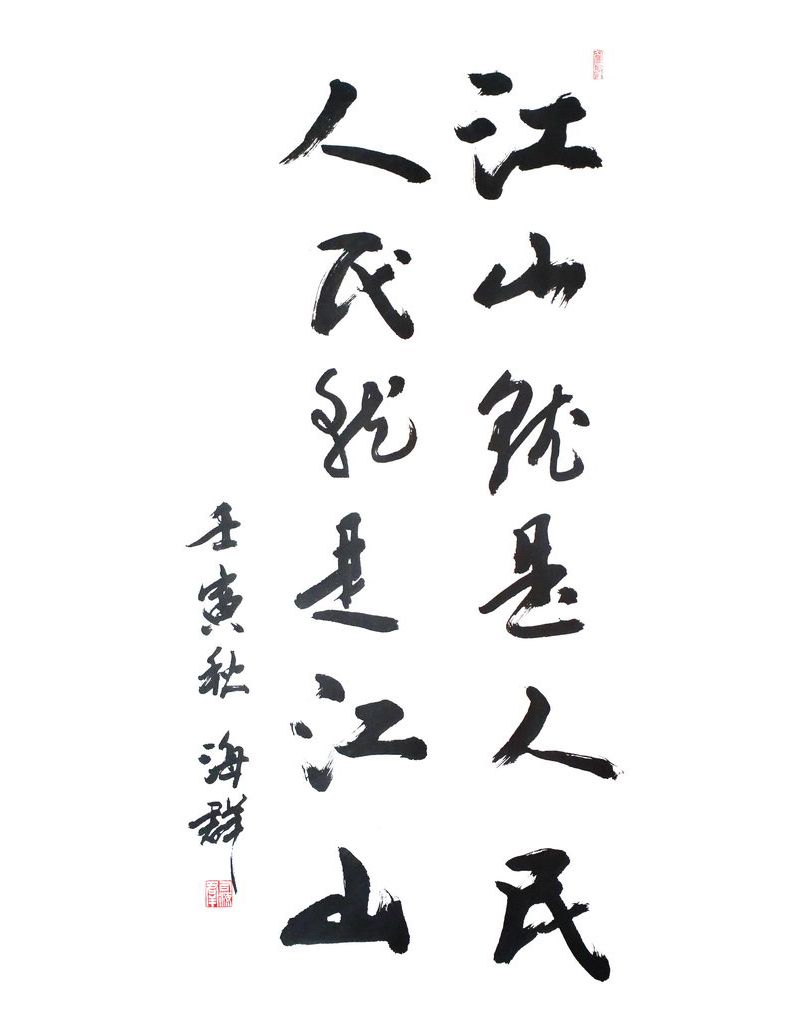 江山就是人民
人民就是江山
壬寅秋 海群